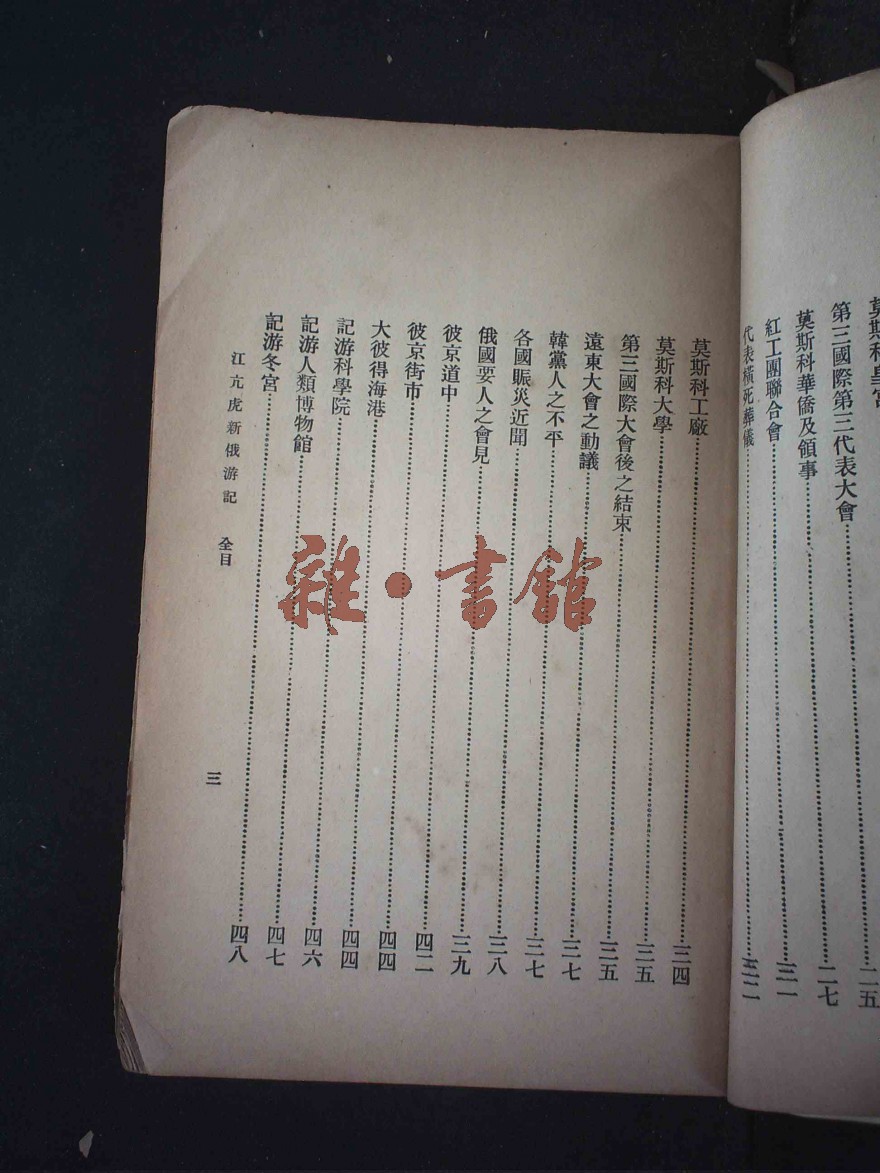 第三國際第三代表大會……二五
莫斯科華僑及領事……二七
紅工團聯合會……三一
代表橫死葬儀……三二
莫斯科工廠……三四
莫斯科大學……三五
第三國際大會後之結束……三五
遠東大會之動議……三七
韓黨人之不平……三七
各國賑災近聞……三八
俄國要人之會見……三九
彼京道中……四二
彼京街市……四四
大彼得海港……四四
記游科學院……四六
記游人類博物館……四七
記游冬宮……四八
江亢虎新俄游記 全目 三
雜·書館